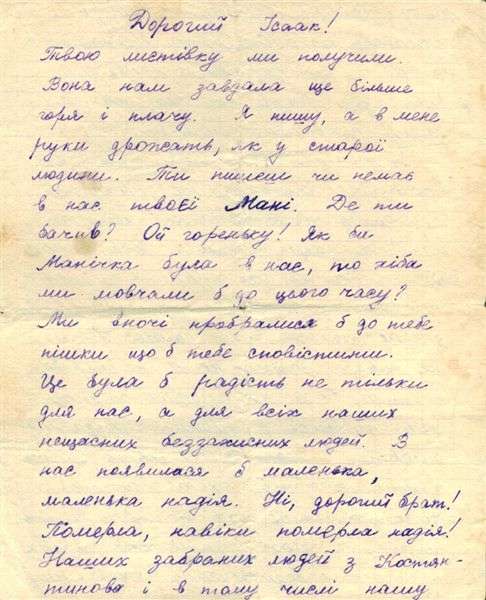 Дорогий Ісаак!
Твою листівку ми получили.
Вона нам завдала ще більше
горя і плачу. Я пишу, а в мене
руки дрожать, як у старої
людини. Ти пишеш чи немає
в нас твоєї Мані. Де ти
бачив? Ой гореньку! Як би
Манічка була в нас, то хіба
ми мовчали б до цього часу?
Ми вночі пробралися б до тебе
пішки що б тебе сповістити.
Це була б радість не тільки
для нас, а для всіх наших
нещасних беззахисних людей. В
нас появилася б маленька,
маленька надія. Ні, дорогий брат!
Померла, навіки померла надія!
Наших забраних людей з Костян-
тинова і в тому числі нашу